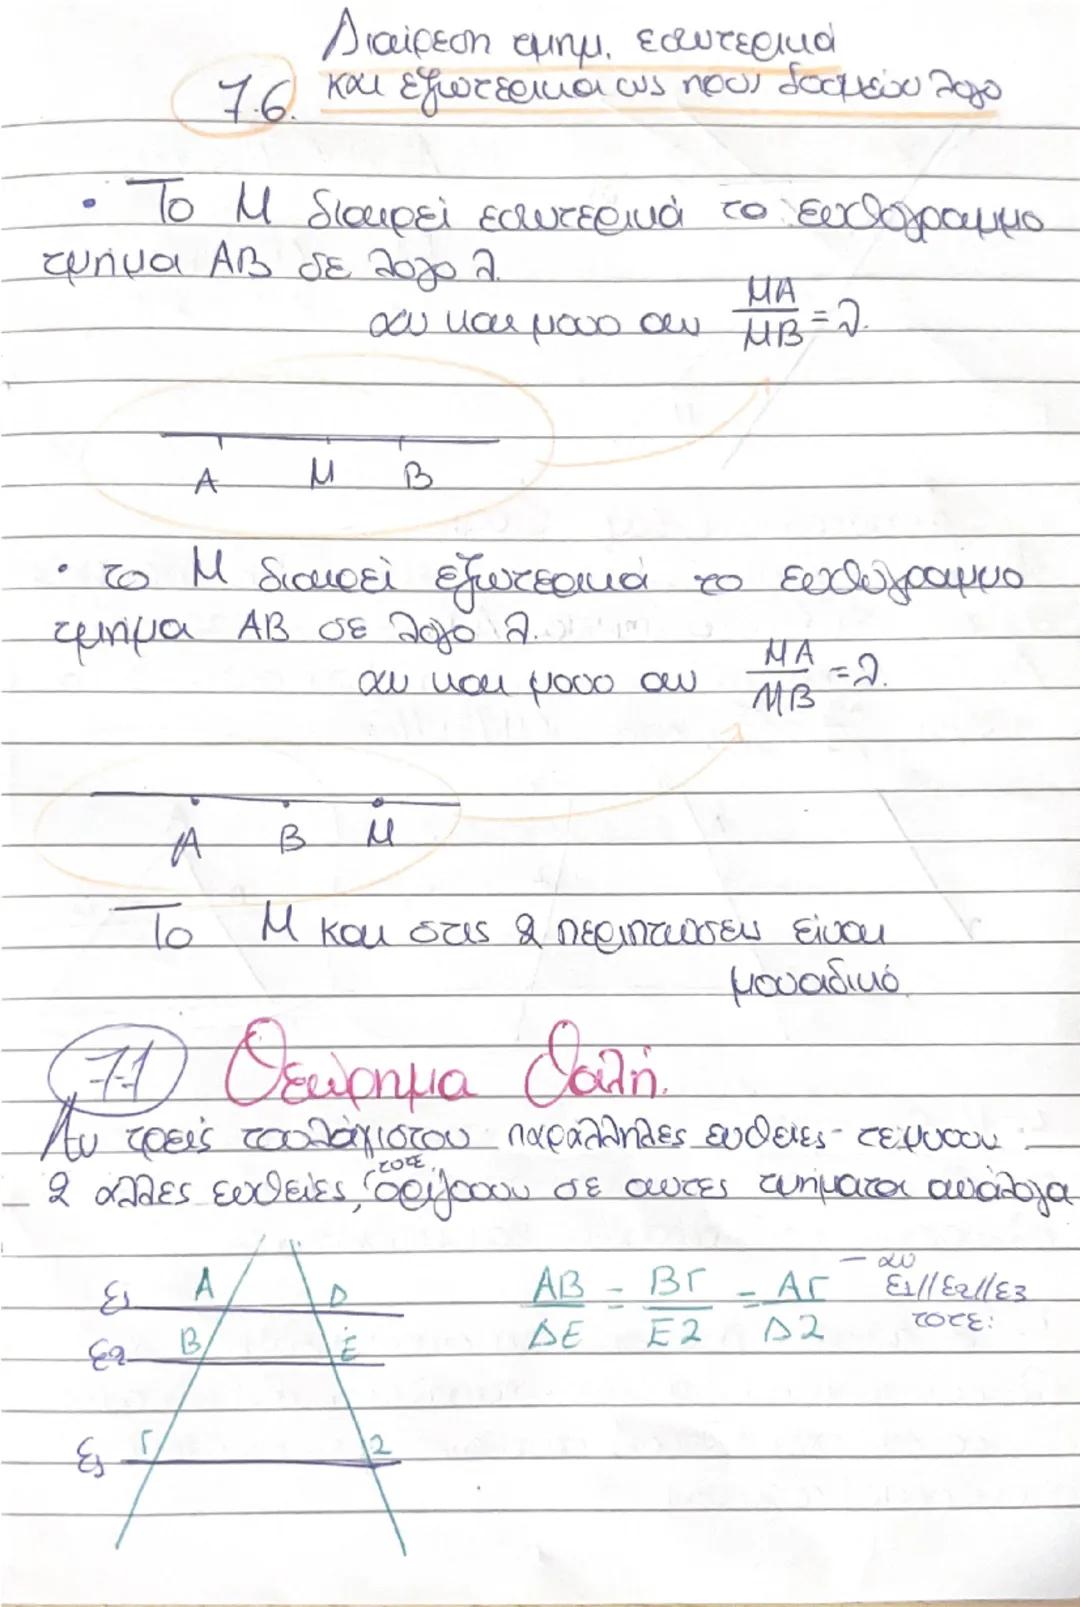 Διαίρεση τμημ. εσωτερικά
7.6. και εξωτερικά ως προς δοσμένο λόγο
• Το Μ διαιρεί εσωτερικά το ευθύγραμμο
τμήμα ΑΒ σε λόγο λ.
αν και μονο αν ΜΑ/ΜΒ = λ.
Α Μ Β
• το Μ διαιρεί εξωτερικά το ευθύγραμμο
τμήμα ΑΒ σε λόγο λ.
αν και μονο αν ΜΑ/ΜΒ = λ.
Α Β Μ
Το Μ και στις 2 περιπτώσεις είναι
μοναδικό.
7.7 Θεώρημα Θαλή.
Αν τρείς τουλάχιστον παράλληλες ευθείες τέμνουν
2 αλλες ευθείες, τοτε ορίζουν σε αυτες τμήματα ανάλογα
ε1 Α Δ
ε2 Β Ε
ε3 Γ Ζ
ΑΒ/ΔΕ = ΒΓ/ΕΖ = ΑΓ/ΔΖ
– αν
ε1//ε2//ε3
τοτε: